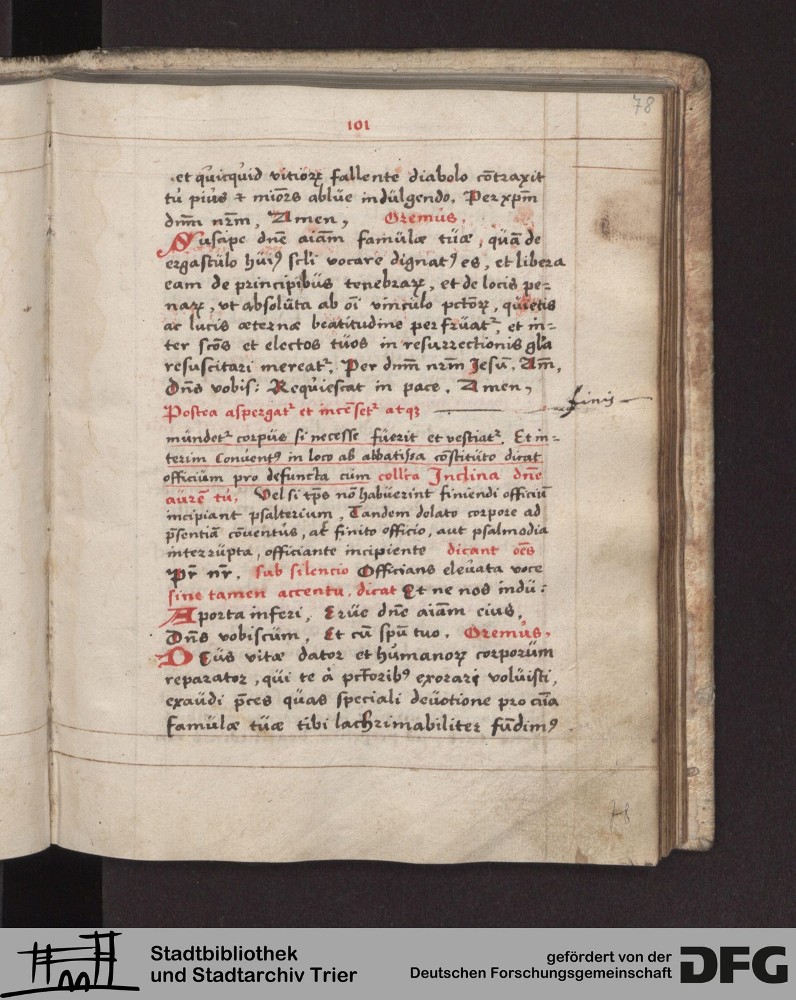 78
101
et quicquid vitiorꝝ fallente diabolo cōtraxit
tu pius & miōrs ablue indulgendo. Per xpm̄
dnm̄ nr̄m, Amen, Oremus.
Suscipe dn̄e aiām famulæ tuæ, quā de
ergastulo huiꝰ scl̄i vocare dignatꝰ es, et libera
eam de principibus tenebrarꝝ, et de locis pe=
narꝝ, vt absoluta ab oī vinculo pctōrꝝ, quietis
ac lucis æternæ beatitudine perfruatᷣ, et in=
ter scōs et electos tuos in resurrectionis gl̄a
resuscitari mereatᷣ. Per dnm̄ nr̄m Jesū. Am̄,
Dn̄s vobis: Requiescat in pace. Amen,
finis
Postea aspergatᷣ et incēsetᷣ atqꝫ
mundetᷣ corpus si necesse fuerit et vestiatᷣ. Et in=
terim Conventꝰ in loco ab abbatissa cōstituto dicat
officium pro defuncta cum collca Inclina dn̄e
aurē tu. Vel si tp̄s nō habuerint finiendi officiū
incipiant psalterium. Tandem delato corpore ad
p̄sentiā cōventus, at finito officio, aut psalmodia
interrupta, officiante incipiente dicant oēs
Pr̄ nr̄. sub silencio Officians elevata voce
sine tamen accentu. dicat Et ne nos indu:
A porta inferi, Erue dn̄e aiām eius,
Dn̄s vobiscum, Et cū spū tuo. Oremus,
Deus vitæ dator et humanorꝝ corporum
reparator, qui te à pctoribꝰ exorari voluisti,
exaudi p̄ces quas speciali devotione pro aīa
famulæ tuæ tibi lachrimabiliter fūdimꝰ
78
Stadtbibliothek
und Stadtarchiv Trier
gefördert von der
Deutschen Forschungsgemeinschaft
DFG